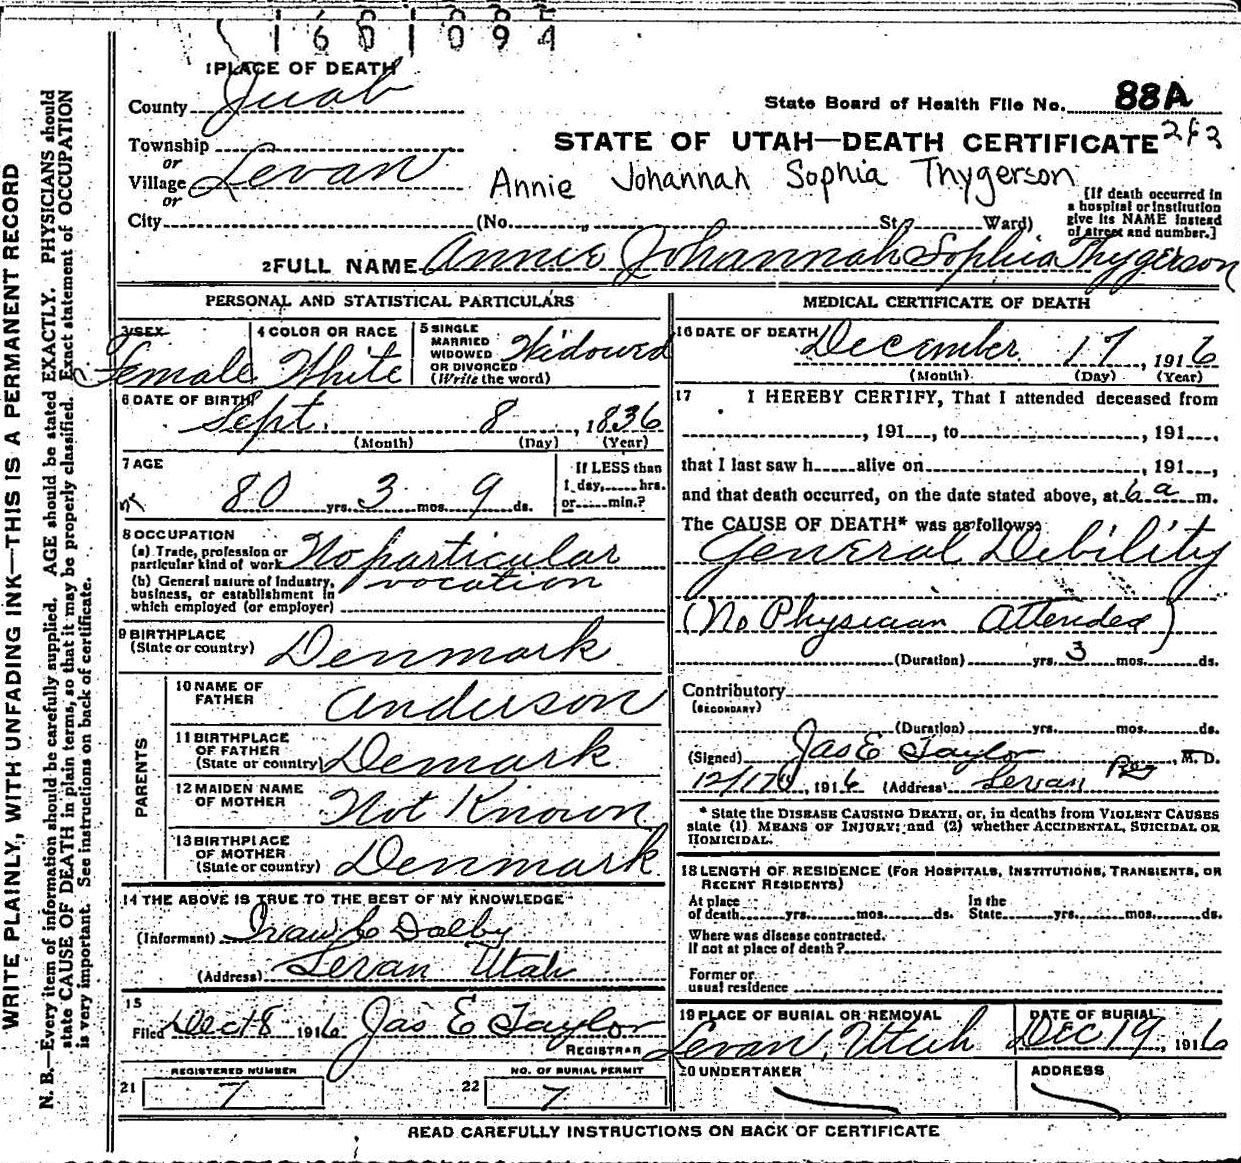 1601094
1 PLACE OF DEATH
County Juab
State Board of Health File No. 88A
Township
or
Village Levan
or
STATE OF UTAH—DEATH CERTIFICATE 2 of 3
Annie Johannah Sophia Thygerson
City (No. St; Ward)
[If death occurred in
a hospital or institution
give its NAME instead
of street and number.]
2 FULL NAME Annie Johannah Sophia Thygerson
PERSONAL AND STATISTICAL PARTICULARS
3 SEX
Female
4 COLOR OR RACE
White
5 SINGLE
MARRIED
WIDOWED
OR DIVORCED
(Write the word)
Widowed
6 DATE OF BIRTH
Sept. 8, 1836
(Month) (Day) (Year)
7 AGE
80 yrs. 3 mos. 9 ds.
If LESS than
1 day, hrs.
or min.?
8 OCCUPATION
(a) Trade, profession or
particular kind of work No particular
(b) General nature of Industry,
business, or establishment in
which employed (or employer)
vocation
9 BIRTHPLACE
(State or country) Denmark
PARENTS
10 NAME OF
FATHER Anderson
11 BIRTHPLACE
OF FATHER
(State or country) Demark
12 MAIDEN NAME
OF MOTHER Not Known
13 BIRTHPLACE
OF MOTHER
(State or country) Denmark
14 THE ABOVE IS TRUE TO THE BEST OF MY KNOWLEDGE
(Informant) Dalby
(Address) Levan Utah
15
Filed Dec 18 1916 Jas E Taylor
REGISTRAR
21 REGISTERED NUMBER
7
22 NO. OF BURIAL PERMIT
7
MEDICAL CERTIFICATE OF DEATH
16 DATE OF DEATH
December 17, 1916
(Month) (Day) (Year)
17 I HEREBY CERTIFY, That I attended deceased from
, 191 , to , 191 ,
that I last saw h alive on , 191 ,
and that death occurred, on the date stated above, at 6 a m.
The CAUSE OF DEATH* was as follows:
General Debility
(No Physician Attended)
(Duration) yrs. 3 mos. ds.
Contributory
(SECONDARY)
(Duration) yrs. mos. ds.
(Signed) Jas E Taylor Reg, M. D.
12/17, 1916 (Address) Levan
* State the DISEASE CAUSING DEATH, or, in deaths from VIOLENT CAUSES
state (1) MEANS OF INJURY; and (2) whether ACCIDENTAL, SUICIDAL OR
HOMICIDAL.
18 LENGTH OF RESIDENCE (FOR HOSPITALS, INSTITUTIONS, TRANSIENTS, OR
RECENT RESIDENTS)
At place
of death yrs. mos. ds.
In the
State yrs. mos. ds.
Where was disease contracted.
If not at place of death?
Former or
usual residence
19 PLACE OF BURIAL OR REMOVAL
Levan, Utah
DATE OF BURIAL
Dec 19, 1916
20 UNDERTAKER
ADDRESS
READ CAREFULLY INSTRUCTIONS ON BACK OF CERTIFICATE
WRITE PLAINLY, WITH UNFADING INK—THIS IS A PERMANENT RECORD
N. B.—Every item of information should be carefully supplied. AGE should be stated EXACTLY. PHYSICIANS should
state CAUSE OF DEATH in plain terms, so that it may be properly classified. Exact statement of OCCUPATION
is very important. See instructions on back of certificate.